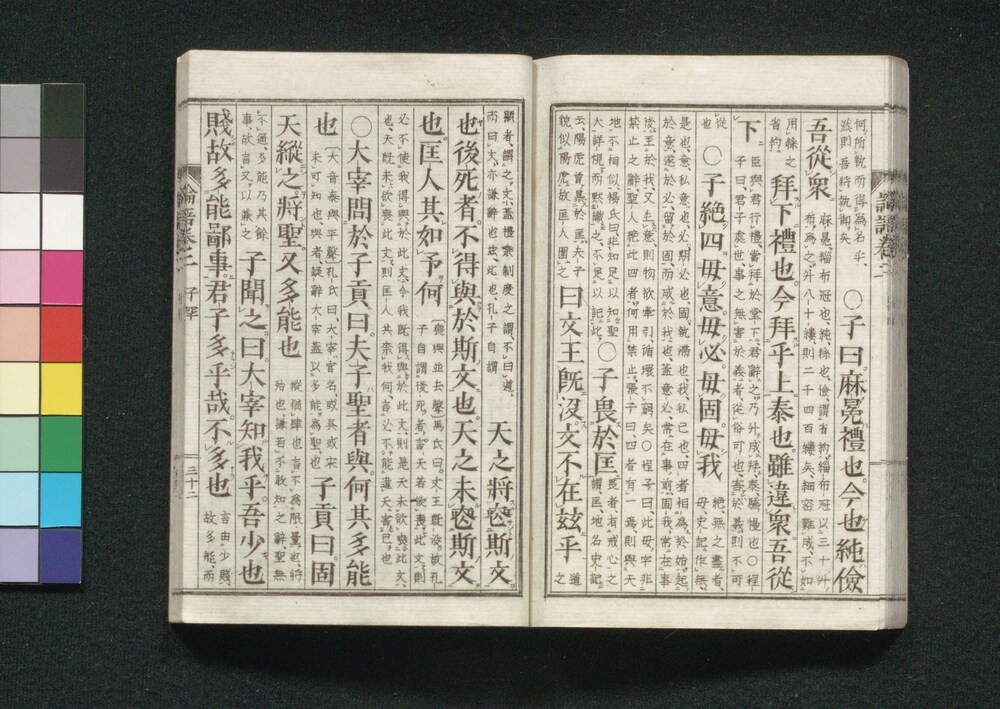 何所執而得為名乎、然則吾將執御矣、○子曰麻冕禮也今也純儉
吾從衆 麻冕、緇布冠也、純、絲也、儉、謂省約、緇布冠以三十升布為之、升八十縷、則二千四百縷矣、細密難成、不如
用絲之省約 拜下禮也今拜乎上泰也雖違衆吾從
下 臣與君行禮、當拜於堂下、君辭之、乃升成拜、泰、驕慢也○程子曰、君子處世、事之無害於義者、從俗可也、害於義、則不可
從也 ○子絶四毋意毋必毋固毋我 絶、無之盡者、毋、史記作無
是也、意、私意也、必、期必也、固、執滯也、我、私己也、四者相為終始、起於意、遂於必、留於固、而成於我也、蓋意必、常在事前、固我、常在事
後、至於我又生意、則物欲牽引、循環不窮矣○程子曰、此毋字、非禁止之辭、聖人絶此四者、何用禁止、張子曰、四者有一焉、則與天
地不相似、楊氏曰、非知足以知聖人、詳視而默識之、不足以記此、○子畏於匡 畏者、有戒心之謂、匡、地名、史記
云、陽虎曾暴於匡、夫子貌似陽虎、故匡人圍之 曰文王既沒文不在茲乎 道之
顯者、謂之文、蓋禮樂制度之謂、不曰道、而曰文、亦謙辭也、茲、此也、孔子自謂 天之將喪斯文
也後死者不得與於斯文也天之未喪斯文
也匡人其如予何 喪與並去聲 馬氏曰、文王既沒、故孔子自謂後死者、言天若欲喪此文、則
必不使我得與於此文、今我既得與於此文、則是天未欲喪此文也、天既未欲喪此文、則匡人其奈我何、言必不能違天害己也
○大宰問於子貢曰夫子聖者與何其多能
也 大音泰與平聲 孔氏曰、大宰官名、或吳或宋、未可知也、與者、疑辭、大宰蓋以多能為聖也 子貢曰固
天縱之將聖又多能也 縱猶肆也、言不為限量也、將殆也、謙若不敢知之辭、聖無
不通、多能乃其餘事、故言又以兼之 子聞之曰大宰知我乎吾少也
賤故多能鄙事君子多乎哉不多也 言由少賤、故多能、而
論語卷三 子罕 三十二